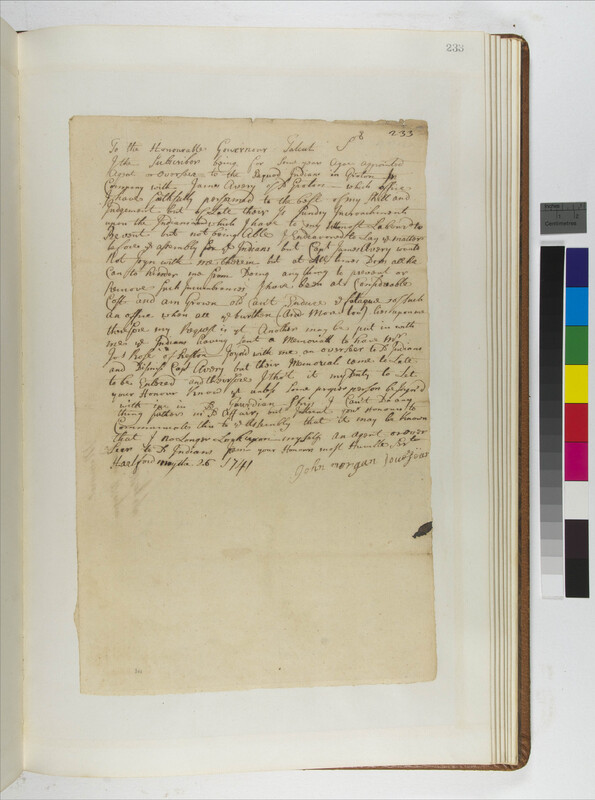 233
233
To the Honourable Governour Talcut Sr
I the Subscriber being for Some year Agoe appointed
Agent or oversear to the Pequod Indians in Groton In
Company with James Avery of sd Groton - which office
I have faithfully performed to the best of my Skill and
Judgement but of Late their Is Sundry Incroachments
upon the Indians which I have to my utmost Labourd to
Prevent but not being Able I Endeavoured to Lay ye matter
before ye assembly for ye Indians but Capt James Avery would
Not Joyn with me therein but at all times Does all he
Can to hinder me from Doing any thing to prevent or
Remove Such Incumbrances I have been att Considerable
Cost and am Grown old Can't Endure ye fatague of Such
an office when all ye burthen
therefore my Request is yt Another may be put in with
me ye Indians having Sent a Memorial to have Mr
Rose of Joyned with me an overseer to sd Indians
and Dismiss Capt Avery but their Memorial came to Late
to be Entered and therefore I think it my Duty to Let
your Honour Know yt unless Some proper person be Joyn'd
with me in sd Guardian Ship I Can't Do any
thing father in sd Affair but Intreat your Honour to
Communicate this to ye Assembly that it may be known
that I No Longer Look upon my Self an agent or over
Seer to sd Indians from your Honours most Humble
Hartford may the 26 1741
John morgan